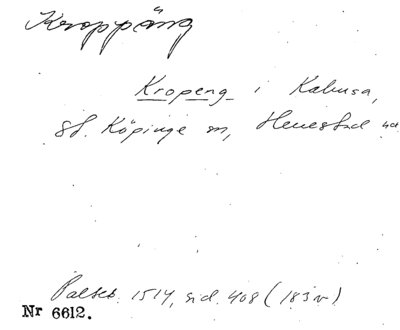 Kroppäng
Kropeng i Kabusa,
St. Köpinge sn, Herrestad hd
Palteb. 1514, sid. 408 (183 v)
Nr 6612.